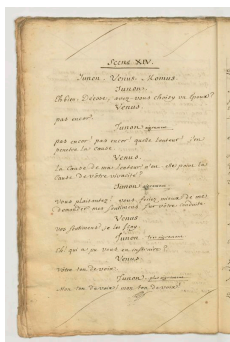 Scene XIV.
Junon. Venus. Momus.
Junon.
Eh bien, Déesse, avez-vous choisy un Epoux?
Venus.
pas encor.
Junon aigrement
pas encor! pas encor! quelle lenteur! j'en
penetre la cause.
Venus.
La Cause de ma lenteur n'en est point la
Cause de vôtre vivacité?
Junon aigrement
Vous plaisantez; vous feriez mieux de me
demander mes sentimens sur vôtre conduite.
Venus
vos sentimens, je les sçay.
Junon
Eh! qui a pu vous en instruire?
Venus.
vôtre ton de voix.
Junon plus aigrement
Mon ton de voix! mon ton de voix!